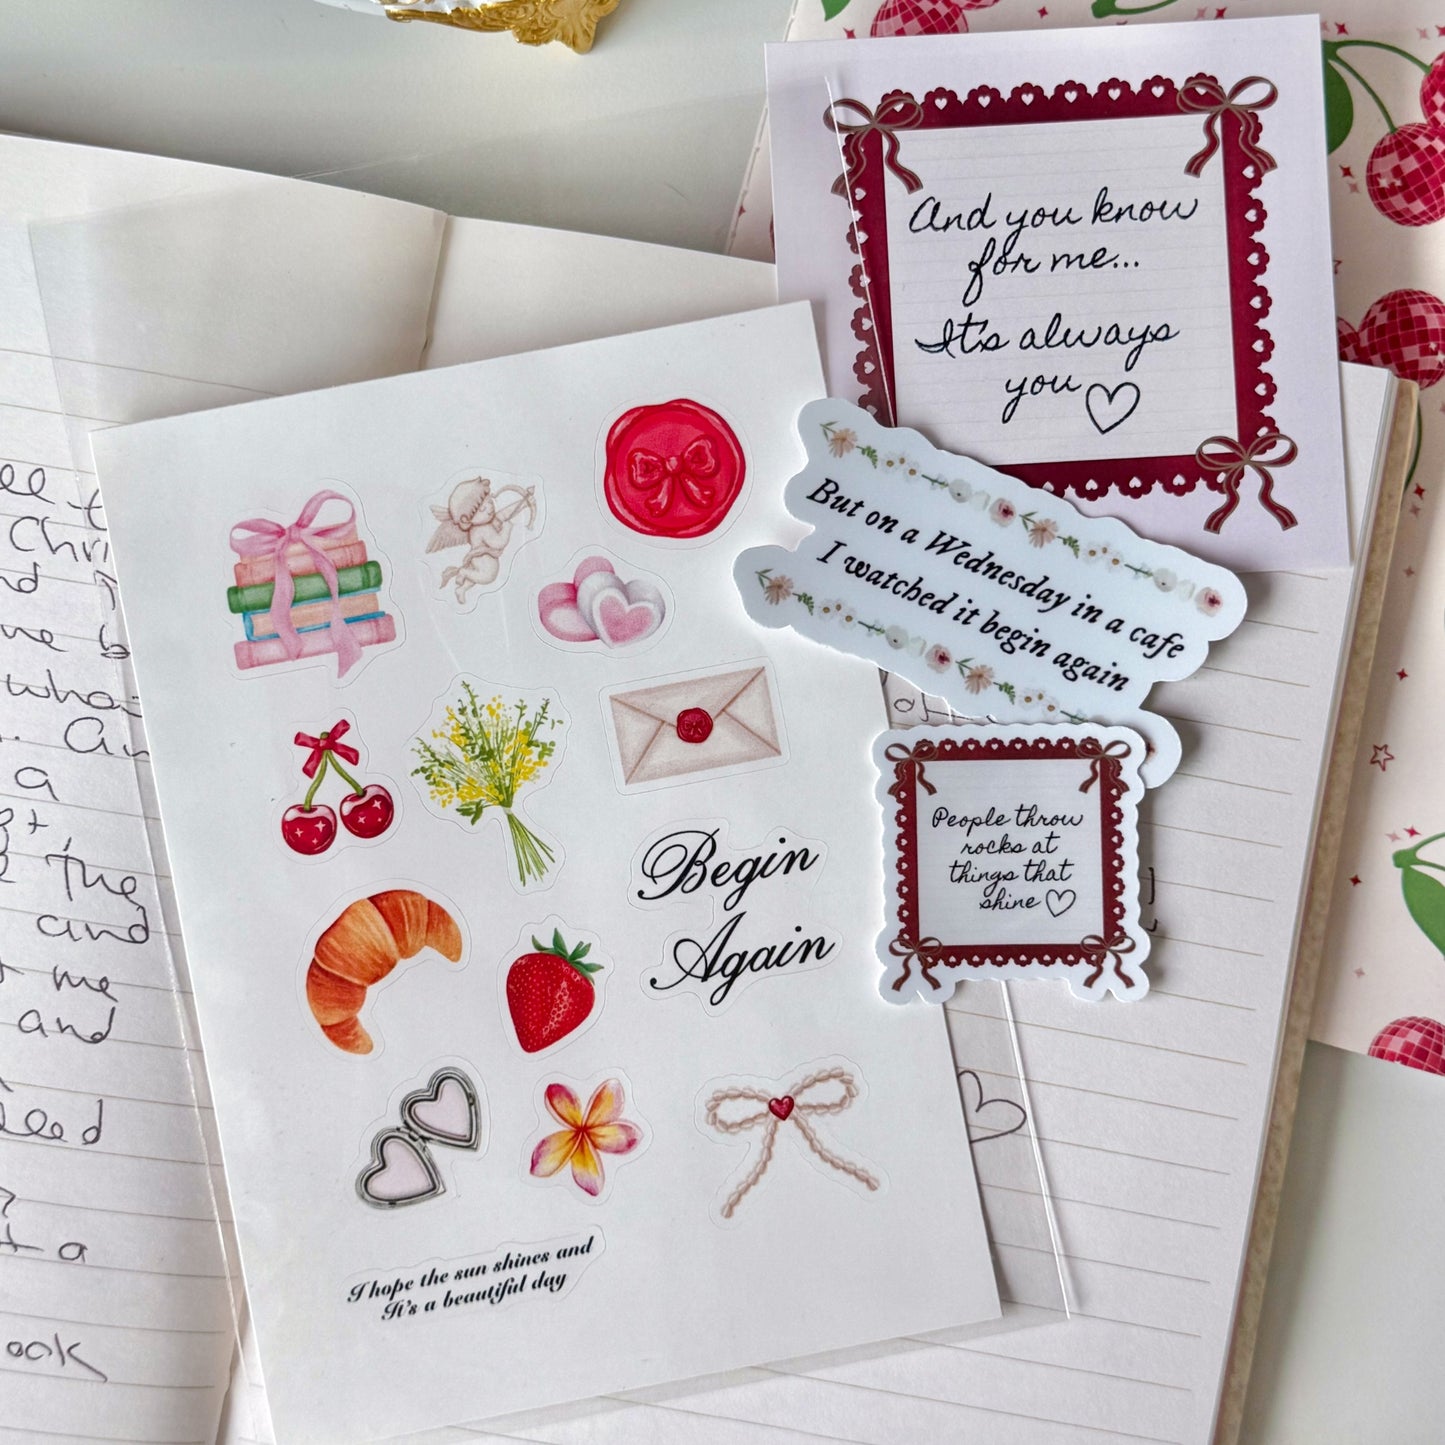 And you know
for me...
It's always
you
But on a Wednesday in a cafe
I watched it begin again
People throw
rocks at
things that
shine
Begin
Again
I hope the sun shines and
It's a beautiful day
a
The
and
me
and
a
ook